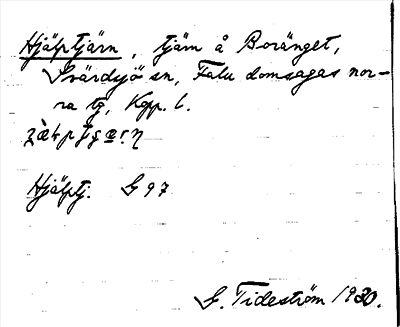 Hjälptjärn, tjärn å Boränget,
Svärdsjö sn, Falu domsagas nor-
ra tg, Kpp. l.
Hjälptj. G 97
G. Tideström 1930.